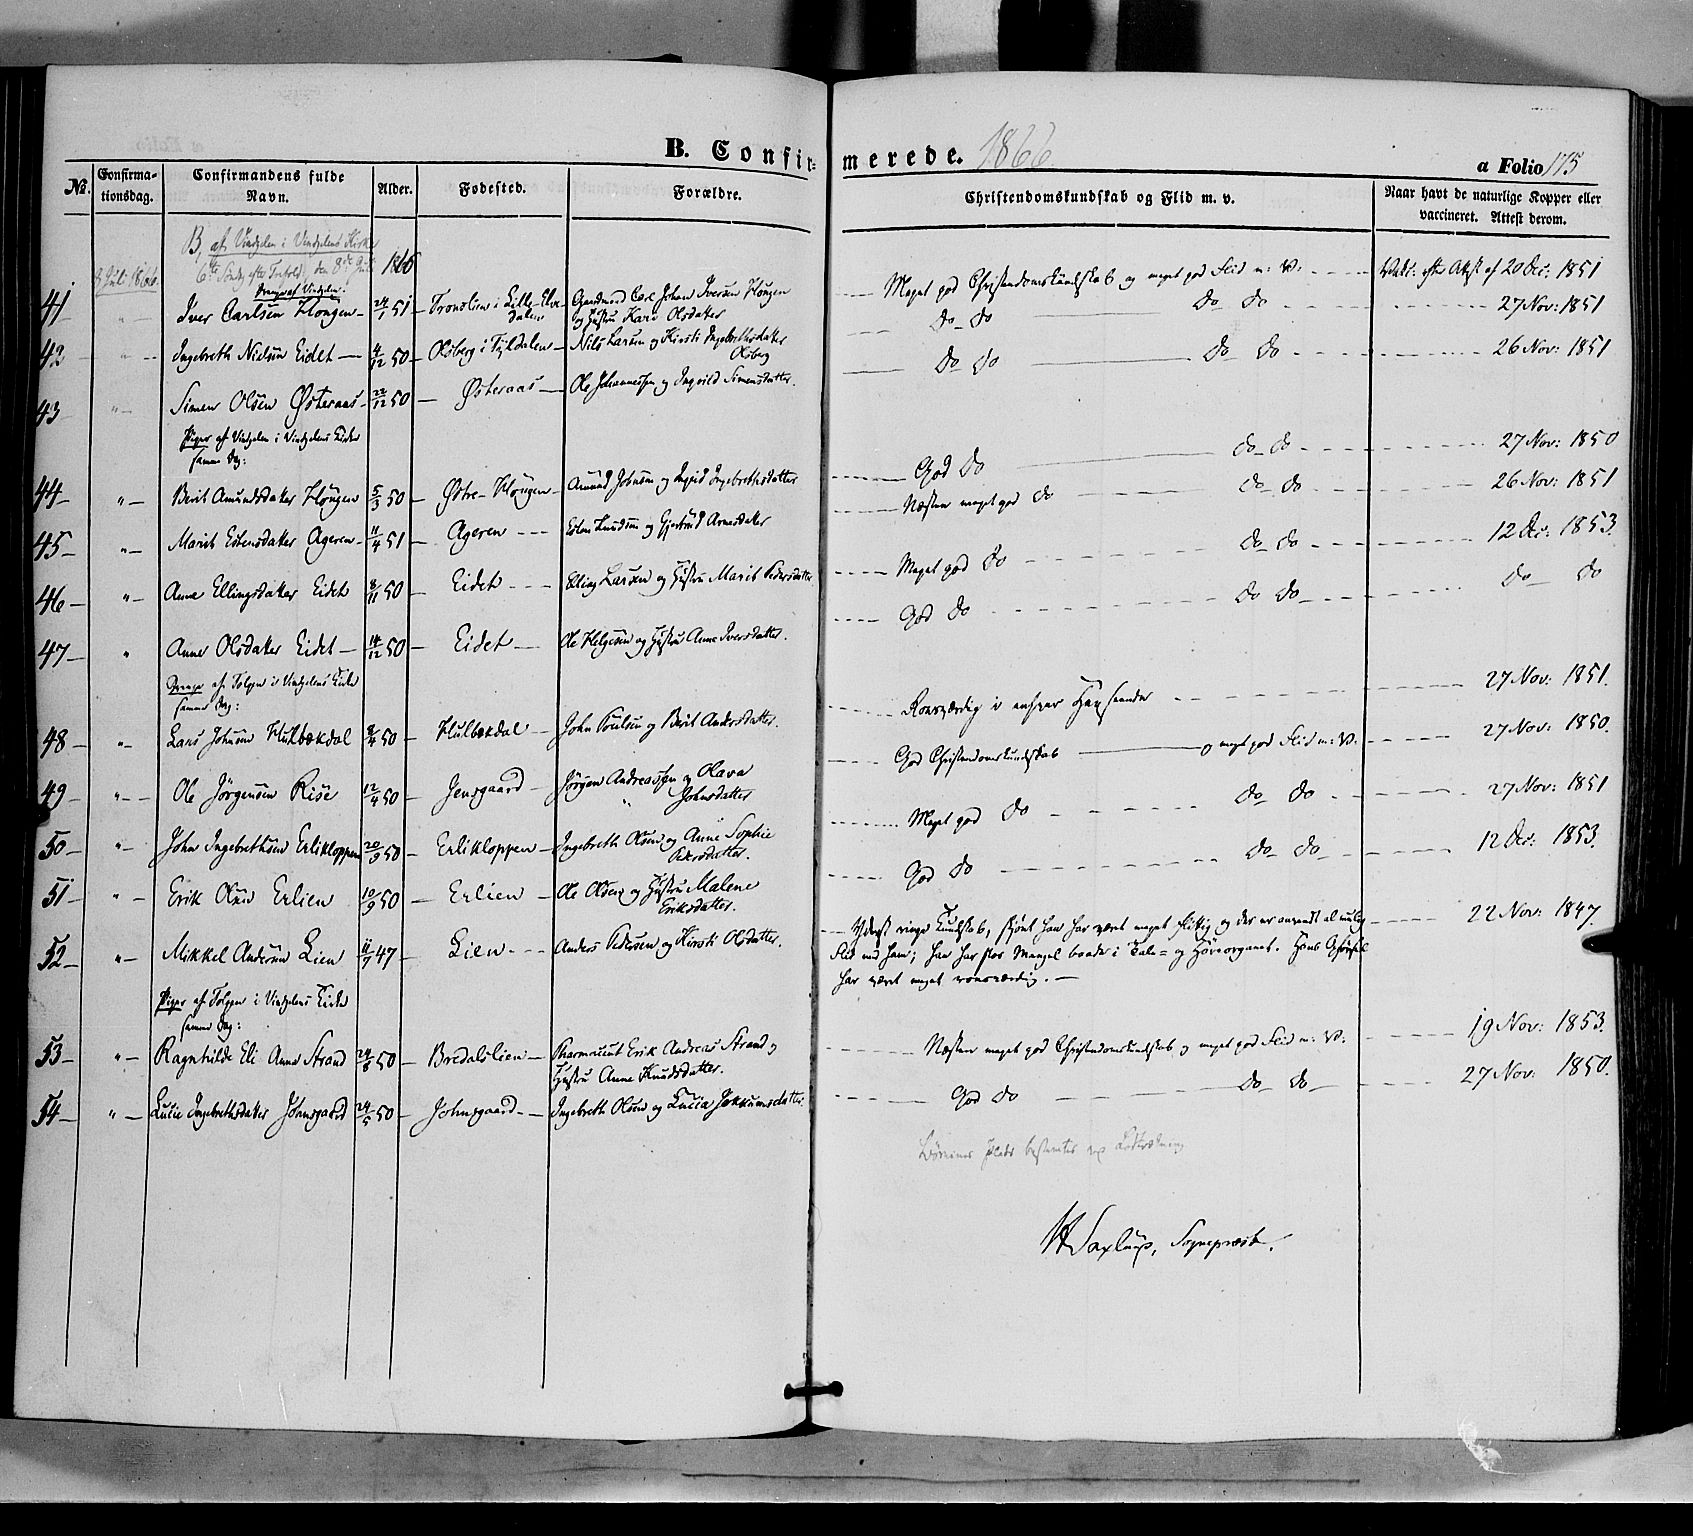 B. Confir-
merede. 1866.
a Folio 175
No.
Confirma-
tionsdag.
Confirmandens fulde
Navn.
Alder.
Fødested.
Forældre.
Christendomskundskab og Flid m. v.
Naar havt de naturlige Kopper eller
vaccineret. Attest derom.
B, af Vindgelen i Vindgelens Kirke
den 8de Juli 1866
Juli 1866.
Drenge af Vindgelen:
41 Iver Carlsen Hougen 24/1 51 Tronslien i Lille-Elve- Gaardmand Carl Johan Iversen Hougen Meget god Christendomskundskab og meget god Flid m: v: Vakc: efter Attest af 20 Dec: 1851
dalen og Hustru Kari Olsdatter
42 " Ingebreth Nielsen Eidet 4/12 50 Olsberg i Tyldalen Nils Larsen og Kirsti Ingebrethsdatter do do do do 27 Nov: 1851
Olsberg
43 " Simen Olsen Østeraas 22/12 50 Østeraas Ole Johannessen og Ingrild Simensdatter. do do do do 26 Nov: 1851
Piger af Vindgelen i Vindgelens Kirke
samme Dag:
44 " Berit Amundsdatter Hougen 5/3 50 Østre-Hougen Amund Johnsen og Ingrid Ingebrethsdatter God do do do 27 Nov: 1850
45 " Marit Estensdatter Ageren 11/4 51 Ageren Esten Knudsen og Gjertrud Arnesdatter Næsten meget god do do do 26 Nov: 1851
46 " Anne Ellingsdatter Eidet 8/11 50 Eidet Elling Larsen og Hustru Marit Pedersdatter Meget god do do do 12 Dec: 1853.
47 " Anne Olsdatter Eidet 14/12 50 Eidet Ole Helgesen og Hustru Anne Iversdatter. God do do do do do
Drenge af Tolgen i Vindgelens Kirke
samme Dag:
48 " Lars Johnsen Hulbækdal 50 Hulbækdal John Poulsen og Berit Andersdatter. Roesværdig i enhver Henseende 27 Nov: 1851.
49 " Ole Jörgensen Rise 12/4 50 Jensgaard Jörgen Andreassen og Olava God Christendomskundskab og meget god Flid m: v: 27 Nov: 1850.
Johnsdatter
50 " John Ingebrethsen Erlikloppen 20/9 50 Erlikloppen Ingebreth Olsen og Anne Sophie Meget god do do do 27 Nov: 1851
Pedersdatter.
51 " Erik Olsen Erlien 10/9 50 Erlien Ole Olsen og Hustru Malene God do do do 12 Dec: 1853.
Eriksdatter.
52 " Mikkel Andersen Lien 11/7 47 Lien Anders Pedersen og Kirsti Olsdatter. Yderst ringe Kundskab, skjönt han har været meget flittig og der er anvendt al mulig 22 Nov: 1847.
Flid med ham; han har stor Mangel baade i Tale- og Höreorganet. Hans Opförsel
har været meget roesværdig.
Piger af Tolgen i Vindgelens Kirke
samme Dag:
53 " Ragnhilde Eli Anne Strand 24/8 50 Bredalslien Pharmaceut Erik Andreas Strand og Næsten meget god Christendomskundskab og meget god Flid m: v: 19 Nov: 1853.
Hustru Anne Knudsdatter.
54 " Lucie Ingebrethsdatter Johnsgaard 24/5 50 Johnsgaard Ingebreth Olsen og Lucia Jokkumsdatter God do do do 27 Nov: 1850.
Børnenes Plads bestemtes ved Lodtrækning
Saxlund, Sognepræst.